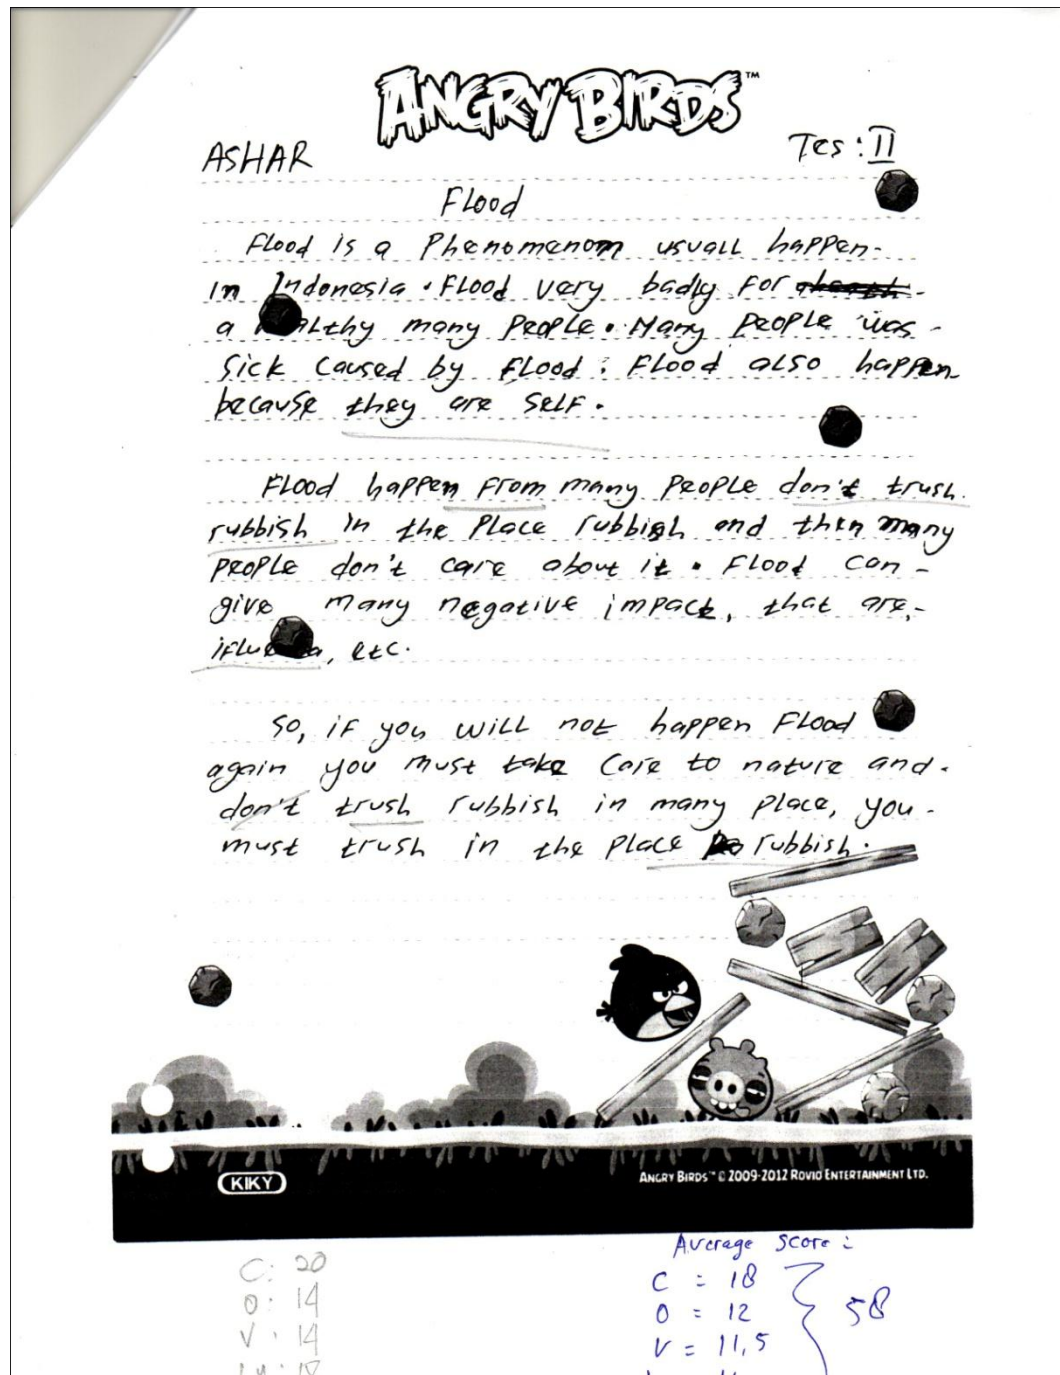 ANGRY BIRDS™
ASHAR Tes : II
Flood
Flood is a Phenomenom usuall happen
in Indonesia. Flood very badly for
a healthy many People. Many People was
sick caused by flood. Flood also happen
because they are self.
Flood happen from many People don't trush
rubbish in the Place rubbish and then many
People don't care about it. Flood can
give many negative impact, that are,
etc.
So, if you will not happen Flood
again you must take care to nature and
don't trush rubbish in many place, you
must trush in the place rubbish.
KIKY
ANGRY BIRDS™ © 2009-2012 ROVIO ENTERTAINMENT LTD.
Average Score :
C: 20
O: 14
V: 14
C = 18
O = 12
V = 11,5
58